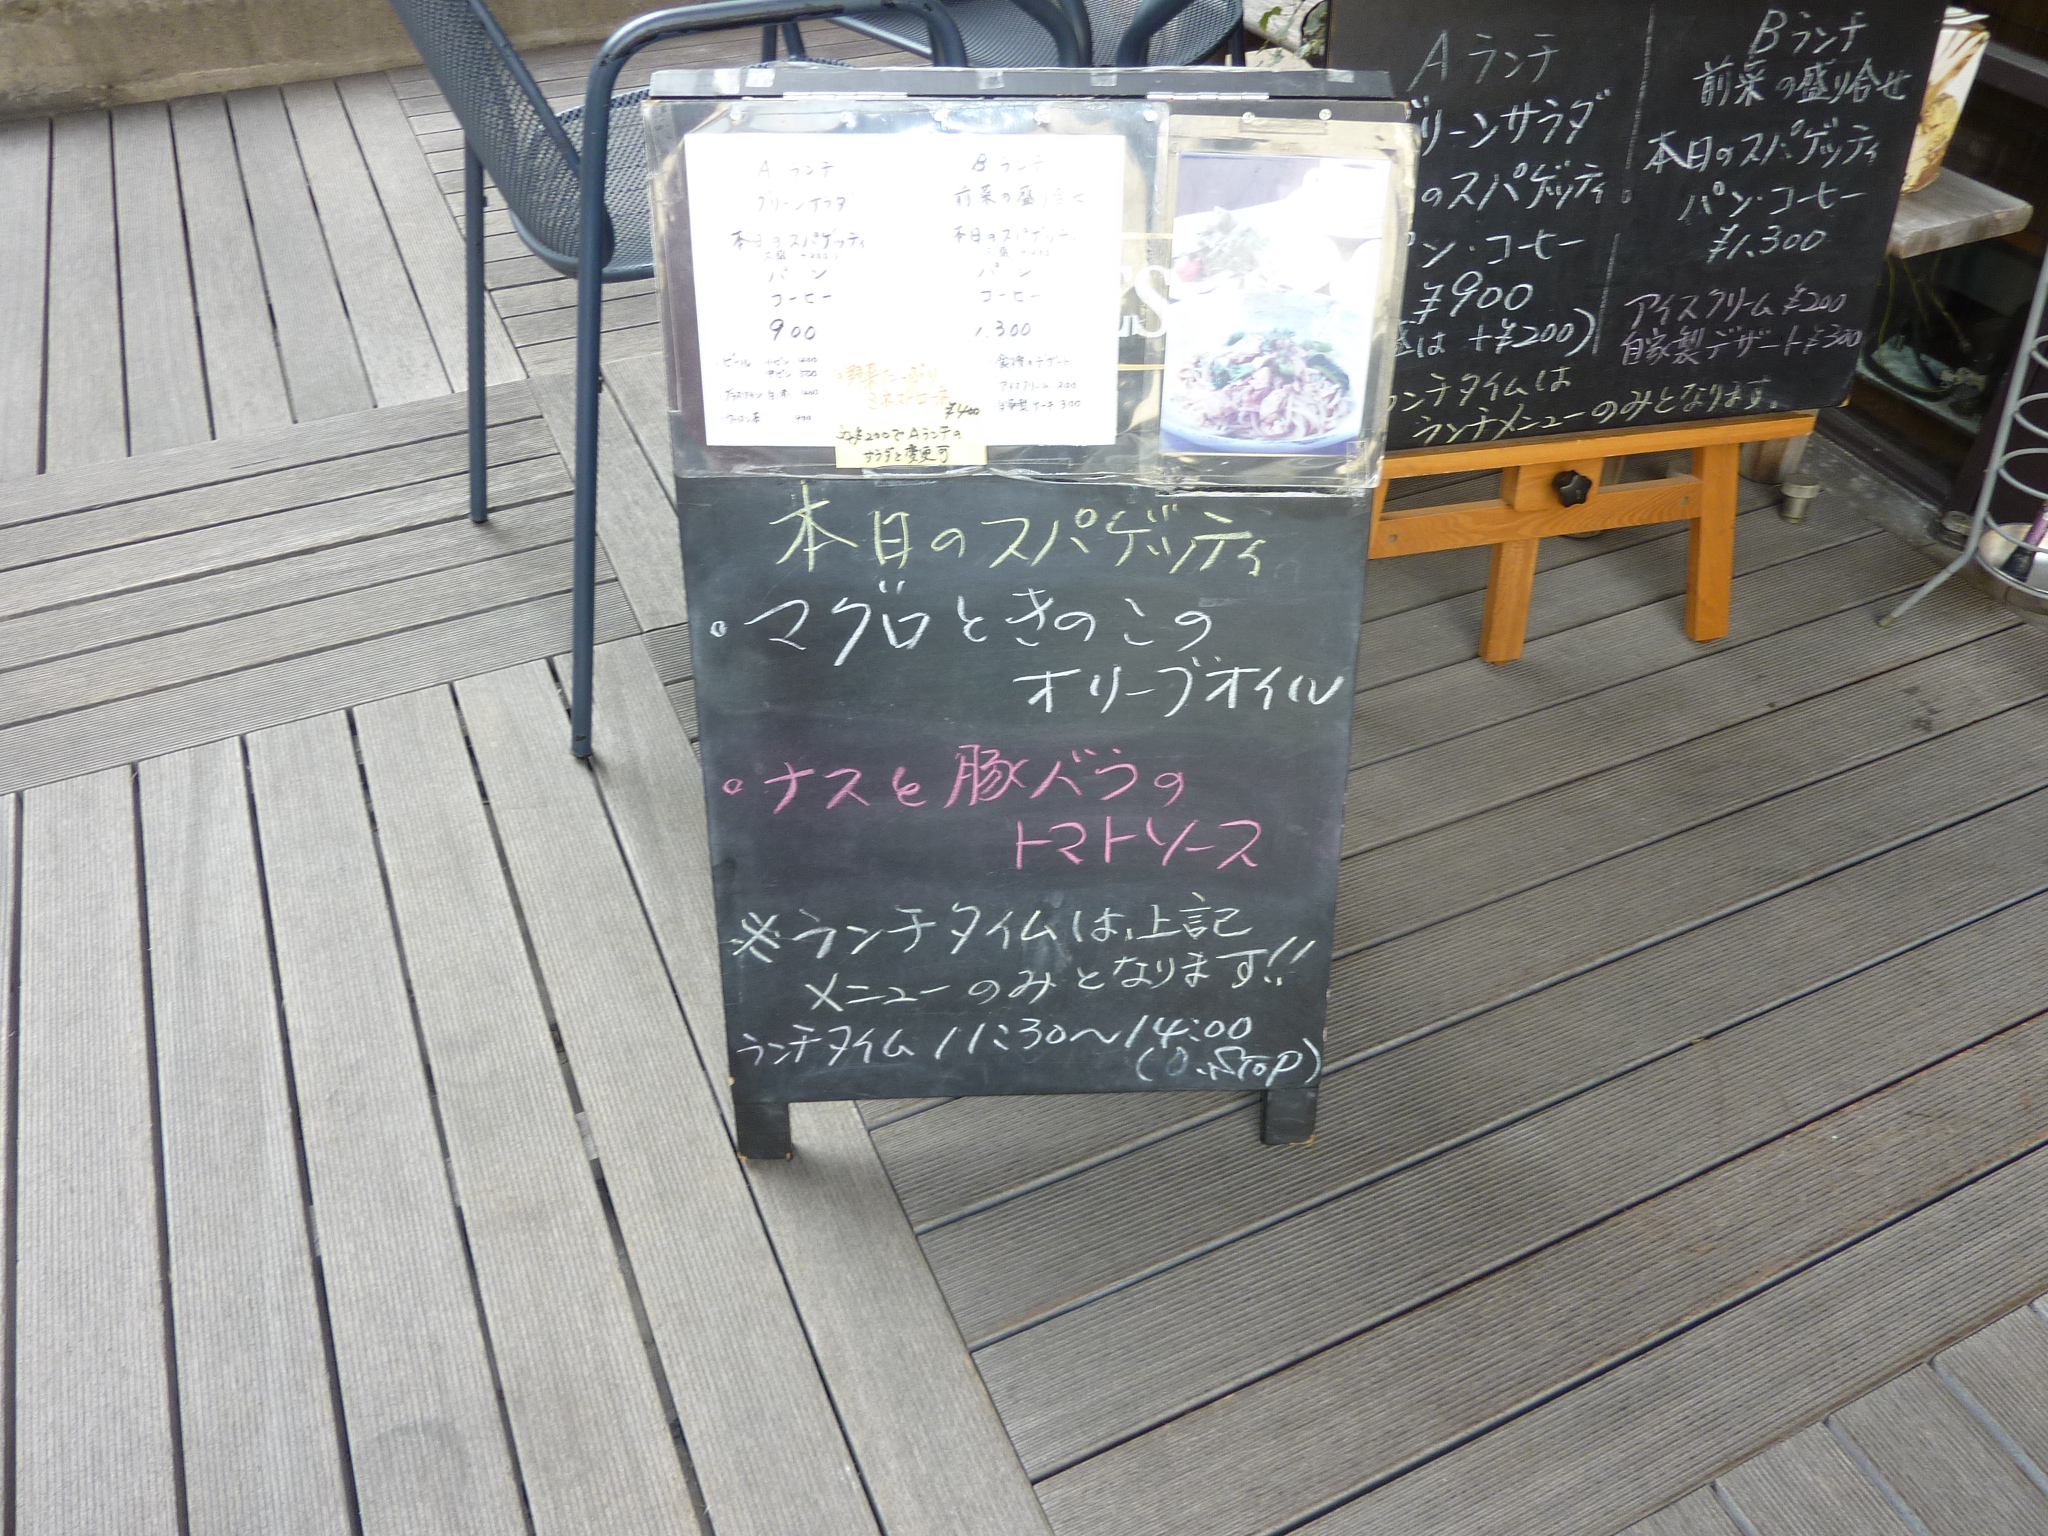 A ランチ
グリーンサラダ
本日のスパゲッティ
パン
コーヒー
900
B ランチ
前菜の盛り合せ
本日のスパゲッティ
パン
コーヒー
1,300
ビール
アイスクリーム 200
自家製ケーキ 300
¥400
プラス¥200でAランチの
サラダと変更可
本日のスパゲッティ
マグロときのこの
オリーブオイル
ナスと豚バラの
トマトソース
※ランチタイムは、上記
メニューのみとなります!!
ランチタイム 11:30〜14:00
(O.STOP)
A ランチ
リーンサラダ
のスパゲッティ
ン・コーヒー
¥900
盛は +¥200)
B ランチ
前菜の盛り合せ
本日のスパゲッティ
パン・コーヒー
¥1,300
アイスクリーム ¥200
自家製デザート ¥300
ランチタイムは
ランチメニューのみとなります。